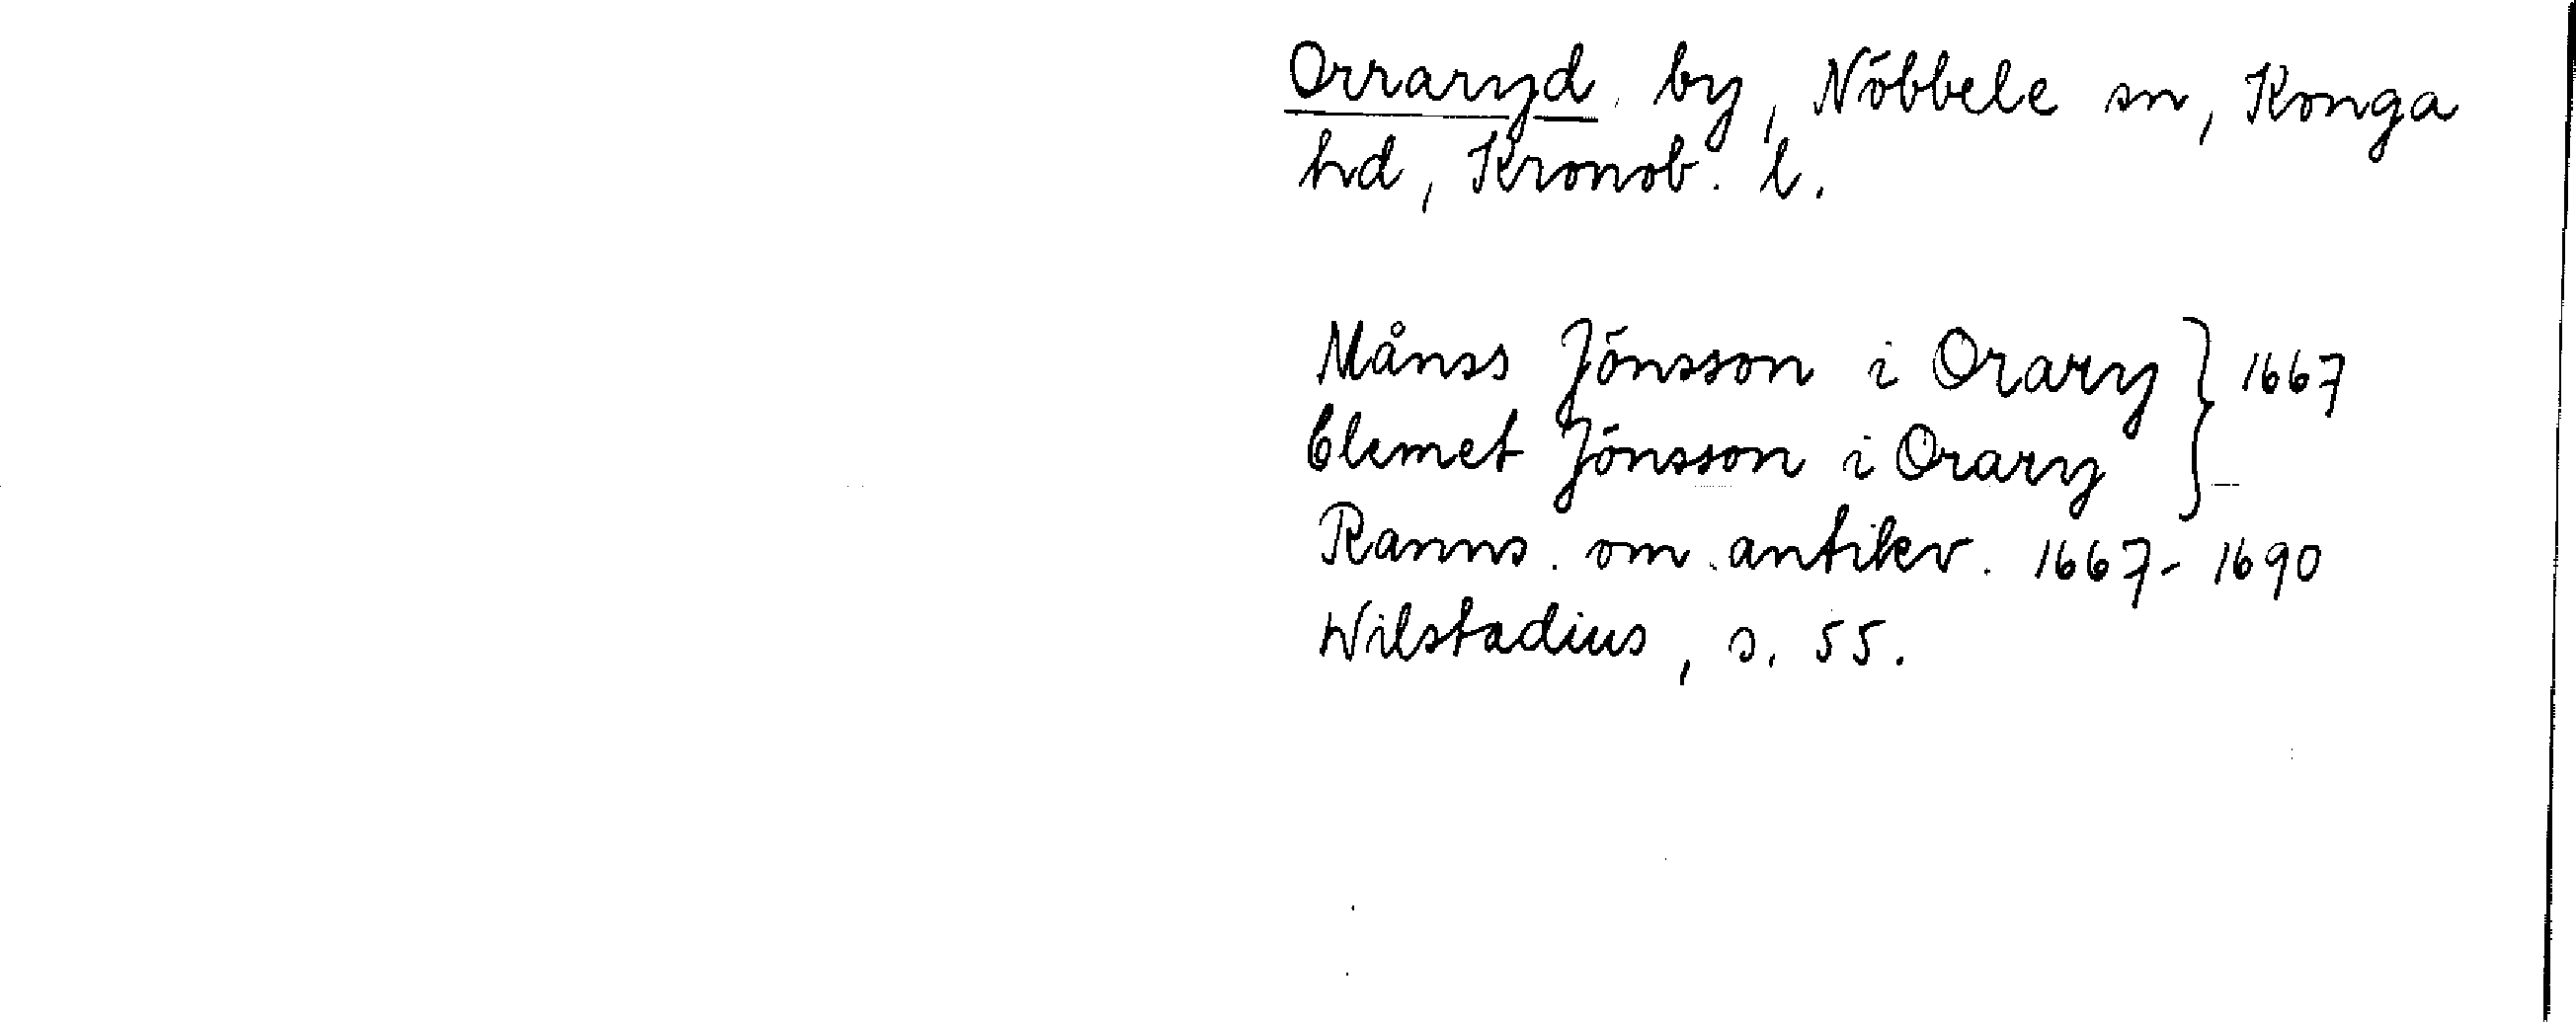 Orraryd, by, Nöbbele sn, Konga
hd, Kronob. l.
Månss Jönsson i Orary } 1667
Clemet Jönsson i Orary
Ranns. om antikv. 1667-1690
Wilstadius, s. 55.